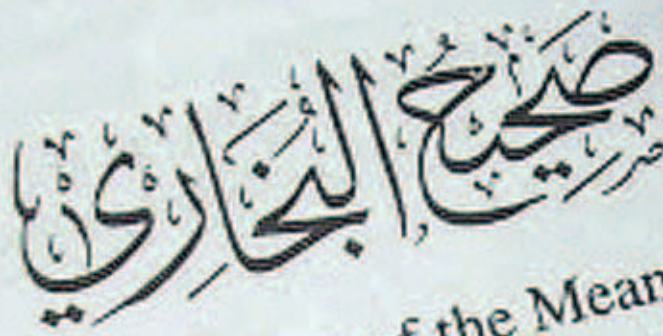 صحيح البخاري
of the Mean